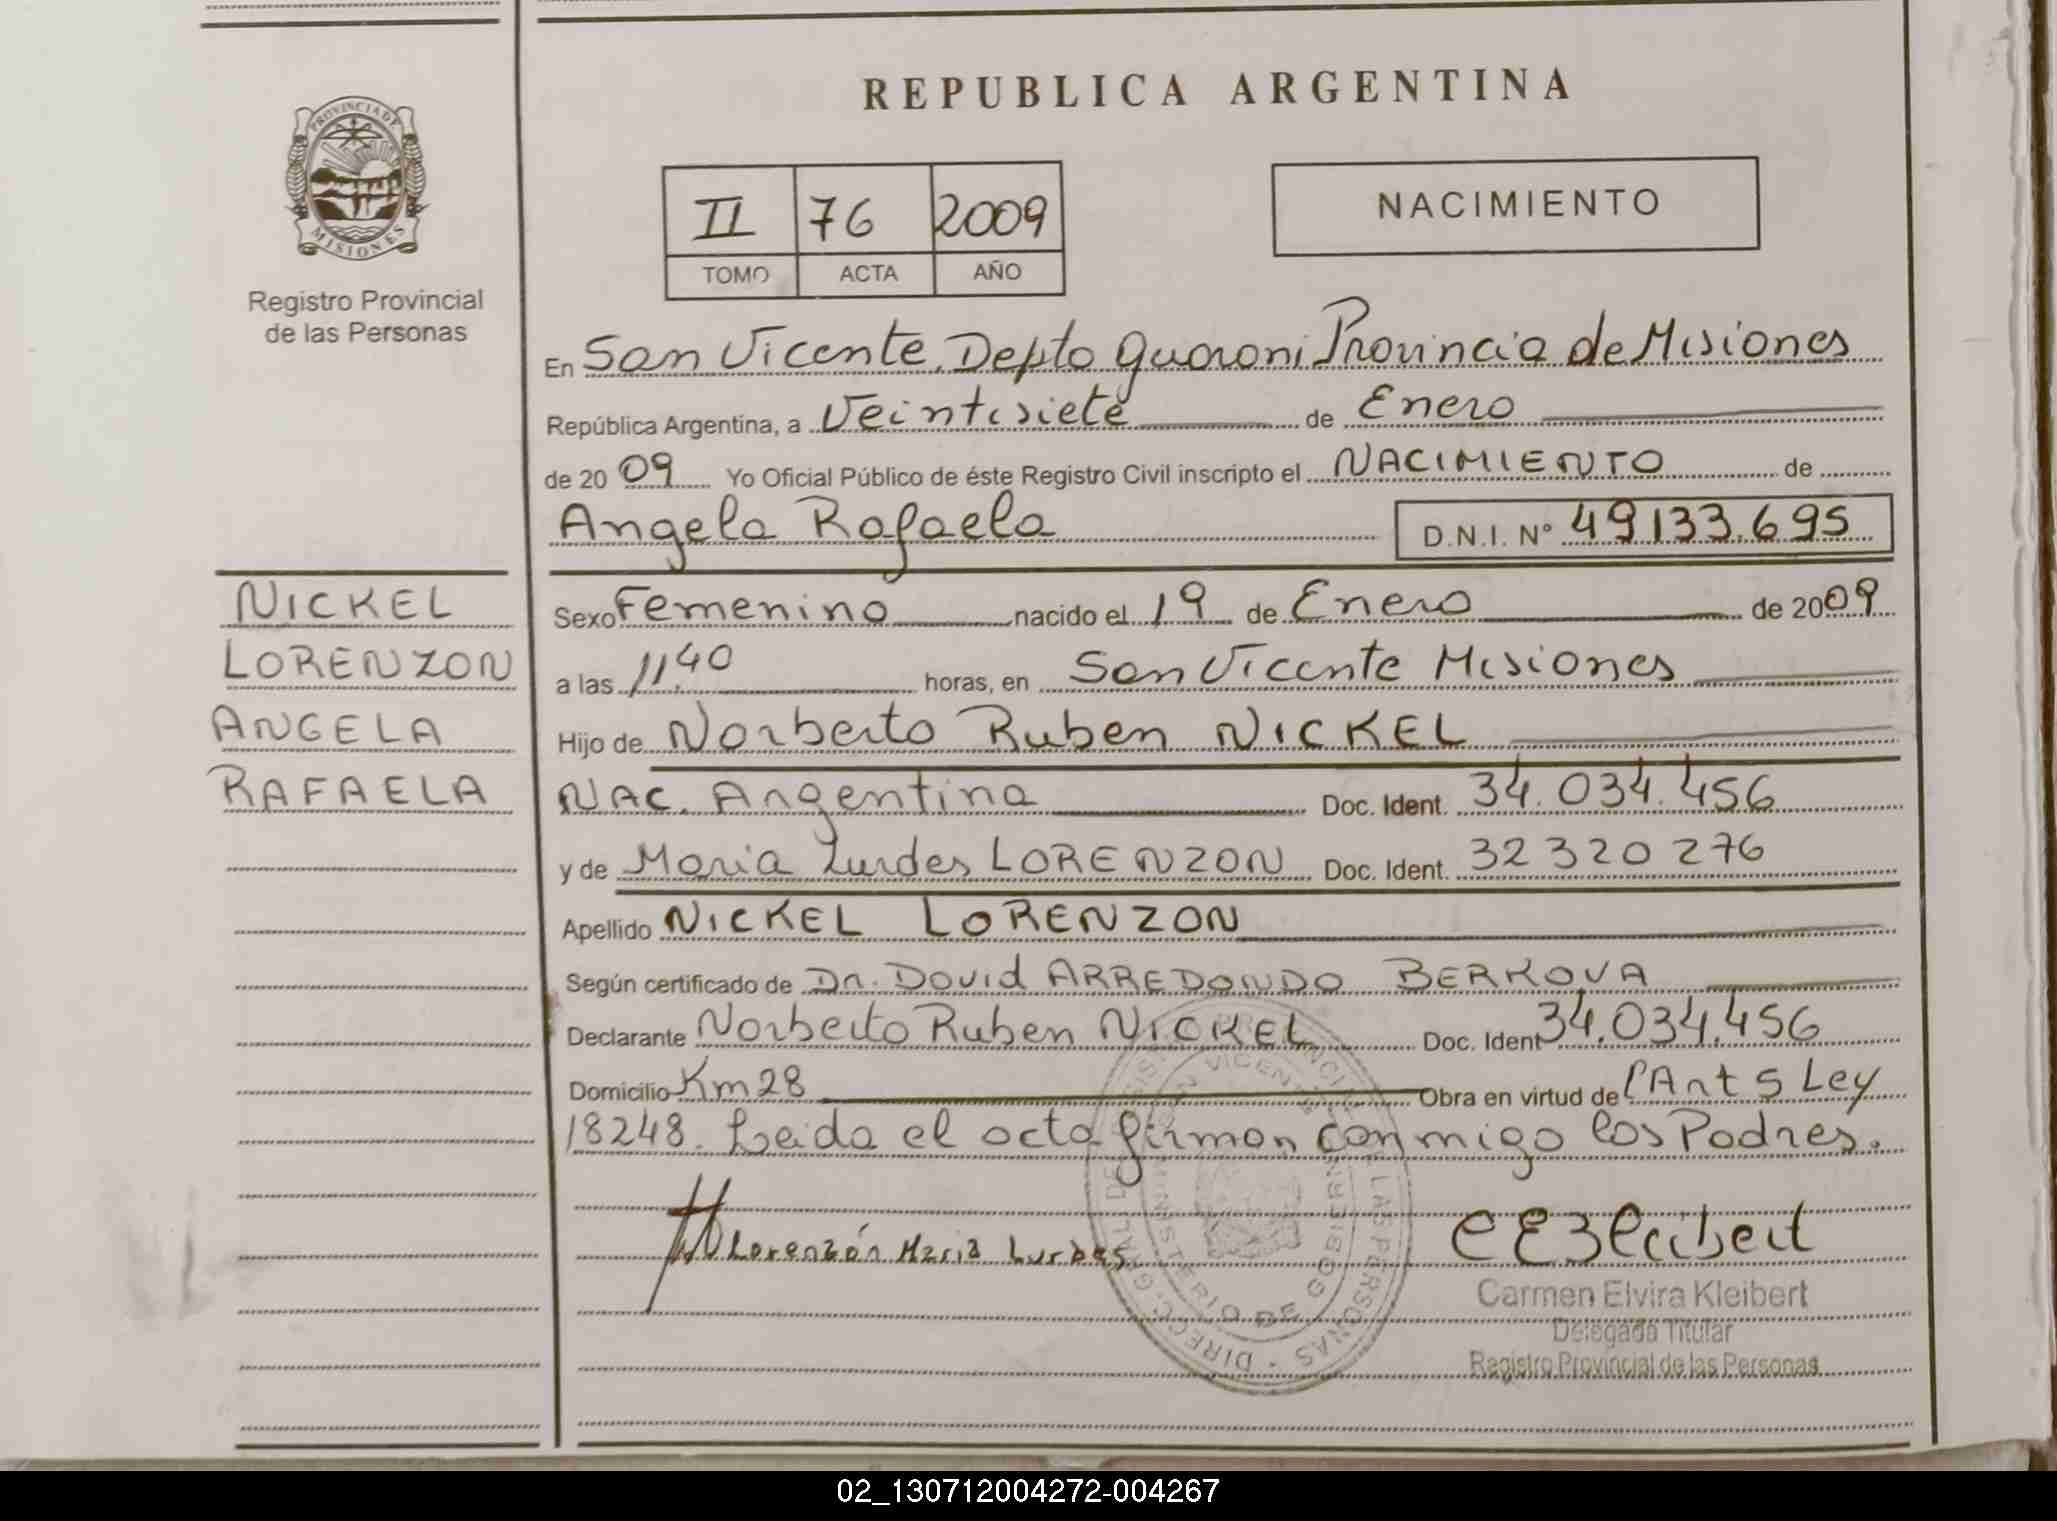 PROVINCIA DE
MISIONES
Registro Provincial
de las Personas
NICKEL
LORENZON
ANGELA
RAFAELA
REPUBLICA ARGENTINA
II 76 2009
TOMO ACTA AÑO
NACIMIENTO
En San Vicente, Depto Guarani Provincia de Misiones
República Argentina, a Veintisiete de Enero
de 2009 Yo Oficial Público de éste Registro Civil inscripto el NACIMIENTO de
Angela Rafaela D.N.I. Nº 49133.695
Sexo Femenino nacido el 19 de Enero de 2009
a las 11,40 horas, en San Vicente Misiones
Hijo de Norberto Ruben NICKEL
NAC. Argentina Doc. Ident. 34.034.456
y de Maria Lurdes LORENZON Doc. Ident. 32320276
Apellido NICKEL LORENZON
Según certificado de Dr. David ARREDONDO BERKOVA
Declarante Norberto Ruben NICKEL Doc. Ident 34.034.456
Domicilio Km 28 Obra en virtud de l'Art 5 Ley
18248. Leida el acta firman conmigo los Padres.
Lorenzón Maria Lurdes
Carmen Elvira Kleibert
Delegada Titular
Registro Provincial de las Personas
02_130712004272-004267